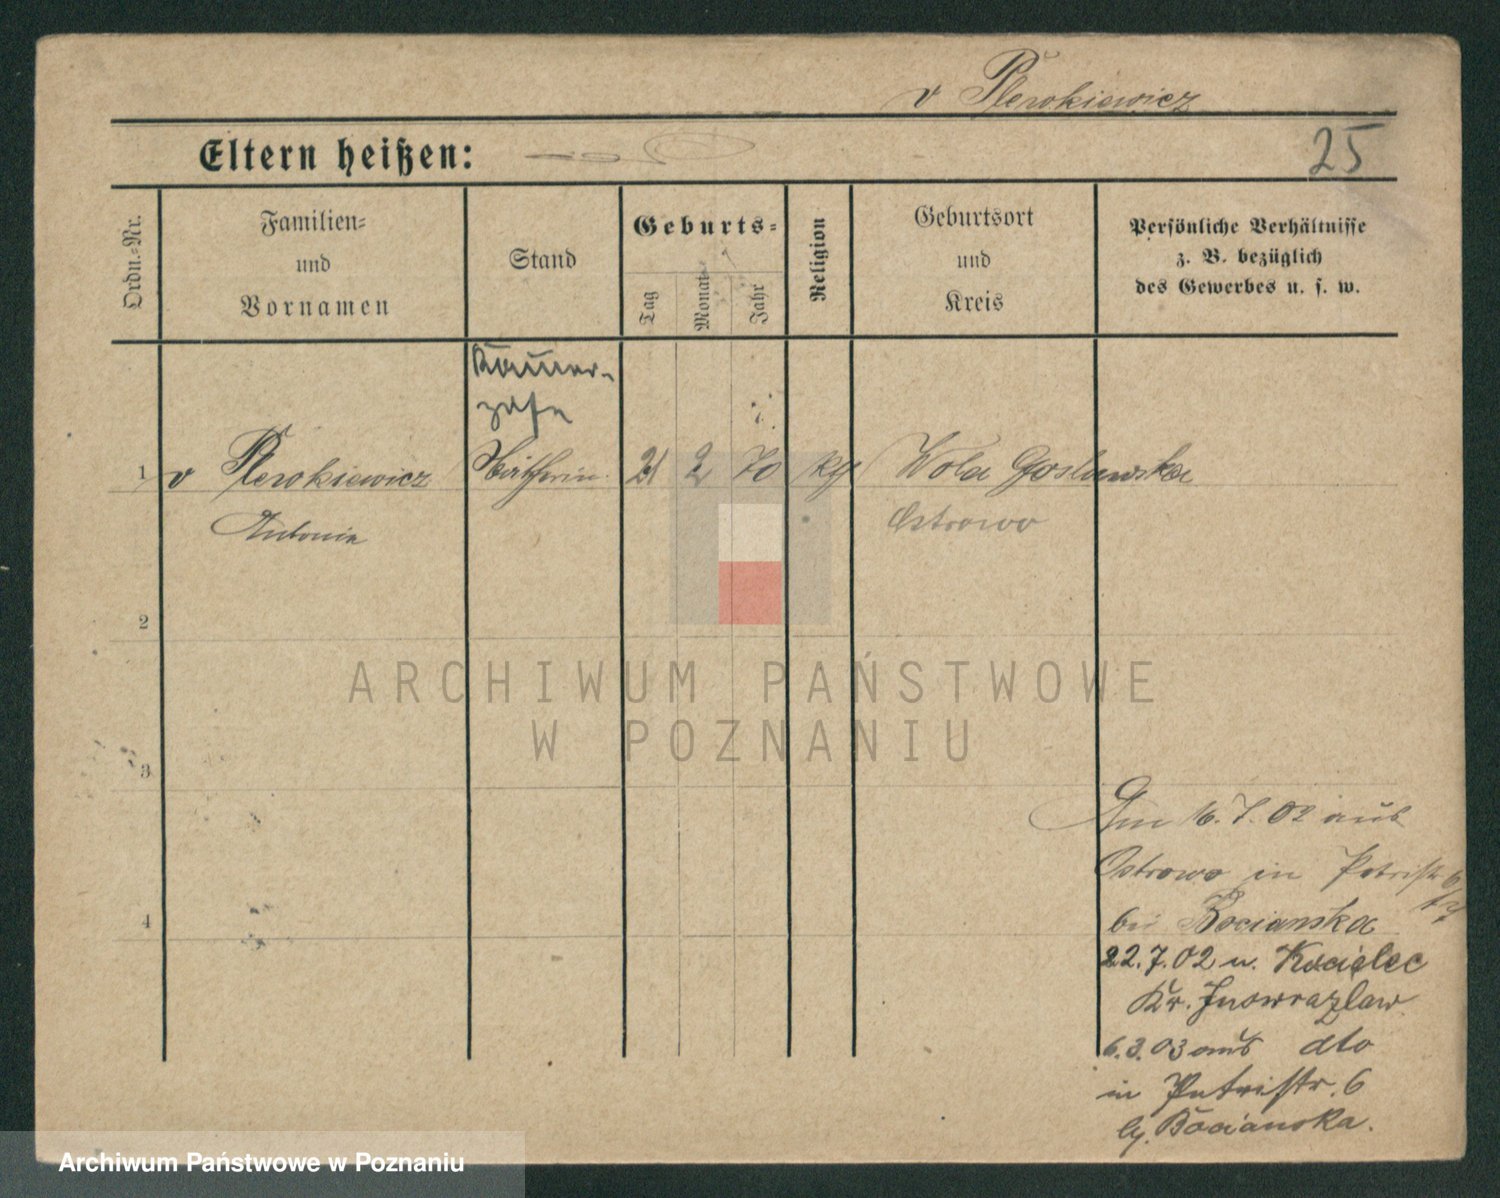 v Plerokiewicz
Eltern heißen:
25
Ordn.-Nr.
Familien-
und
Vornamen
Stand
Geburts-
Tag
Monat
Jahr
Religion
Geburtsort
und
Kreis
Persönliche Verhältnisse
z. B. bezüglich
des Gewerbes u. s. w.
1 v Plerokiewicz 21 2 70 kg Wola Goslawska
Antonie Ostrowo
2
3
4
Am 16.7.02 aus
Ostrowo in Petristr 6
bei Bocianska
22.7.02 n. Koscielec
Kr. Inowrazlaw
6.3.03 aus dto
in Petristr. 6
Bocianska.
ARCHIWUM PAŃSTWOWE
W POZNANIU
Archiwum Państwowe w Poznaniu